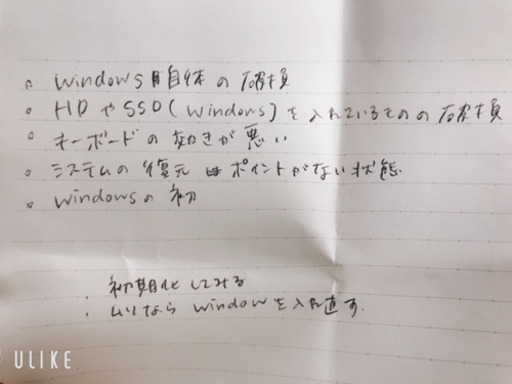 。Windows自体の破損
。HDやSSD(Windows)を入れているものの破損
。キーボードの効きが悪い
。システムの復元はポイントがない状態
。Windowsの初
初期化してみる
・ムリなら windowを入れ直す。
ULIKE